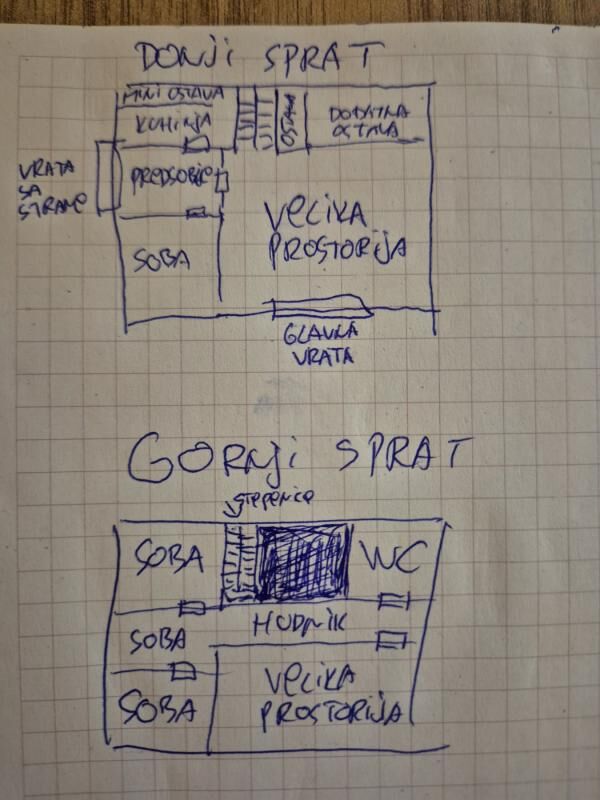 DONJI SPRAT
MINI OSTAVA
KUHINJA
OSTAVA
DODATNA
OSTAVA
VRATA
SA
STRANE
PREDSOBJE
VELIKA
PROSTORIJA
SOBA
GLAVNA
VRATA
GORNJI SPRAT
stepenice
SOBA
WC
HODNIK
SOBA
VELIKA
PROSTORIJA
SOBA